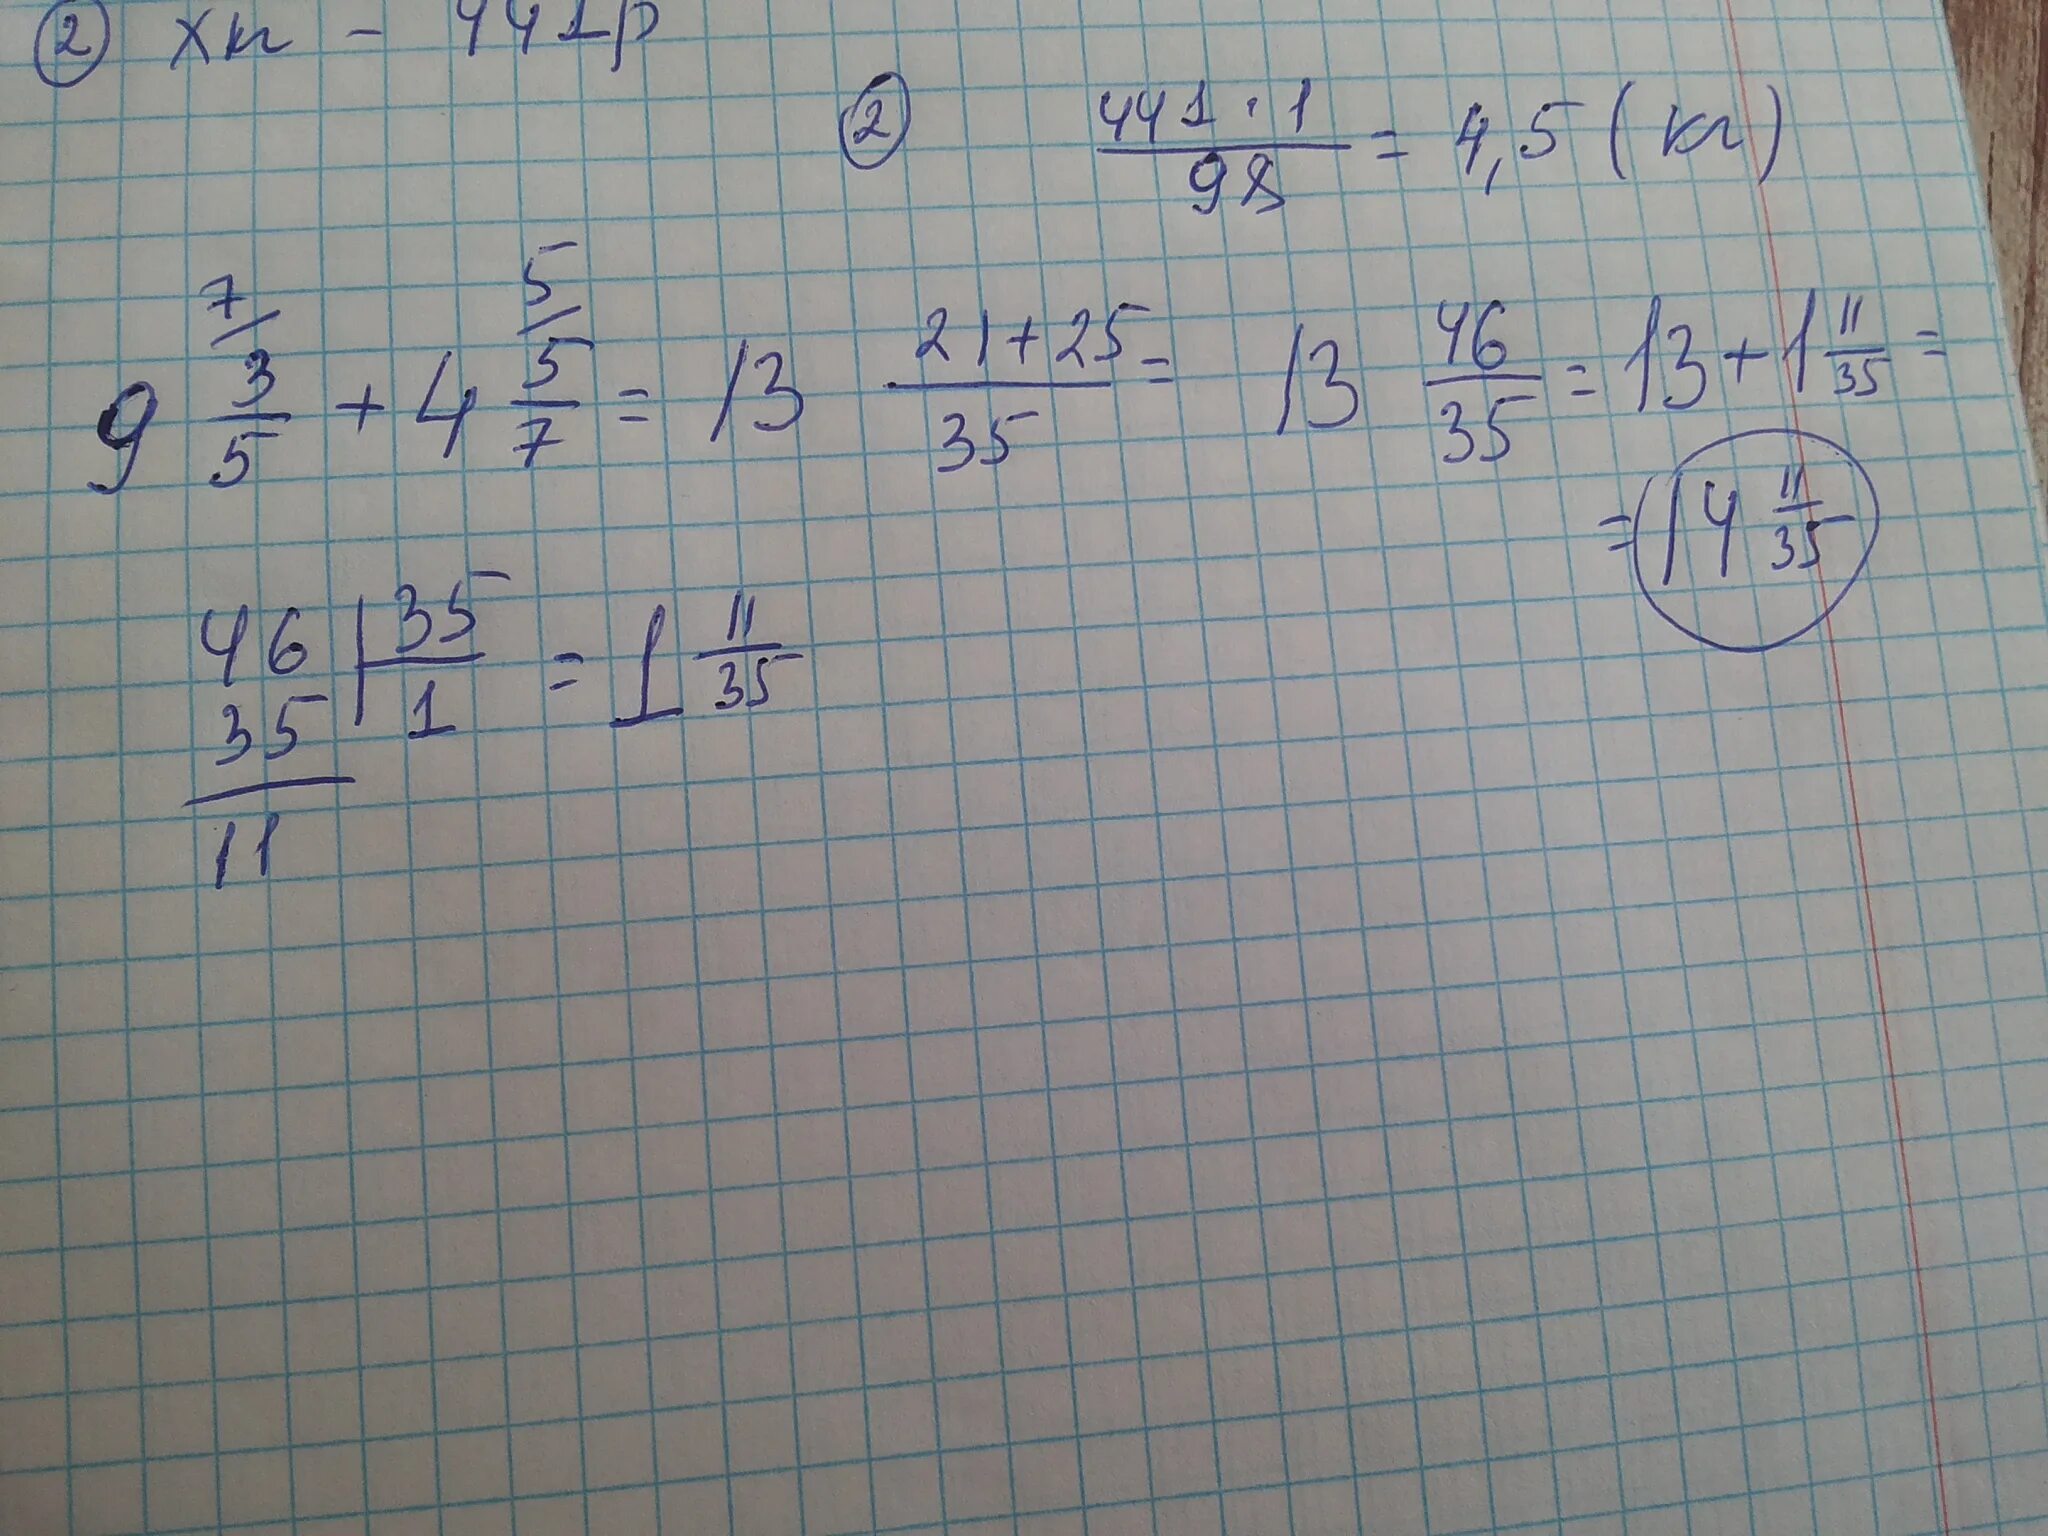 ② х кг - 441р
② 441·1/98 = 4,5 (кг)
9 3/5 (7/) + 4 5/7 (5/) = 13 (21+25)/35 = 13 46/35 = 13 + 1 11/35 =
= 14 11/35
46 | 35
35 | 1 = 1 11/35
11